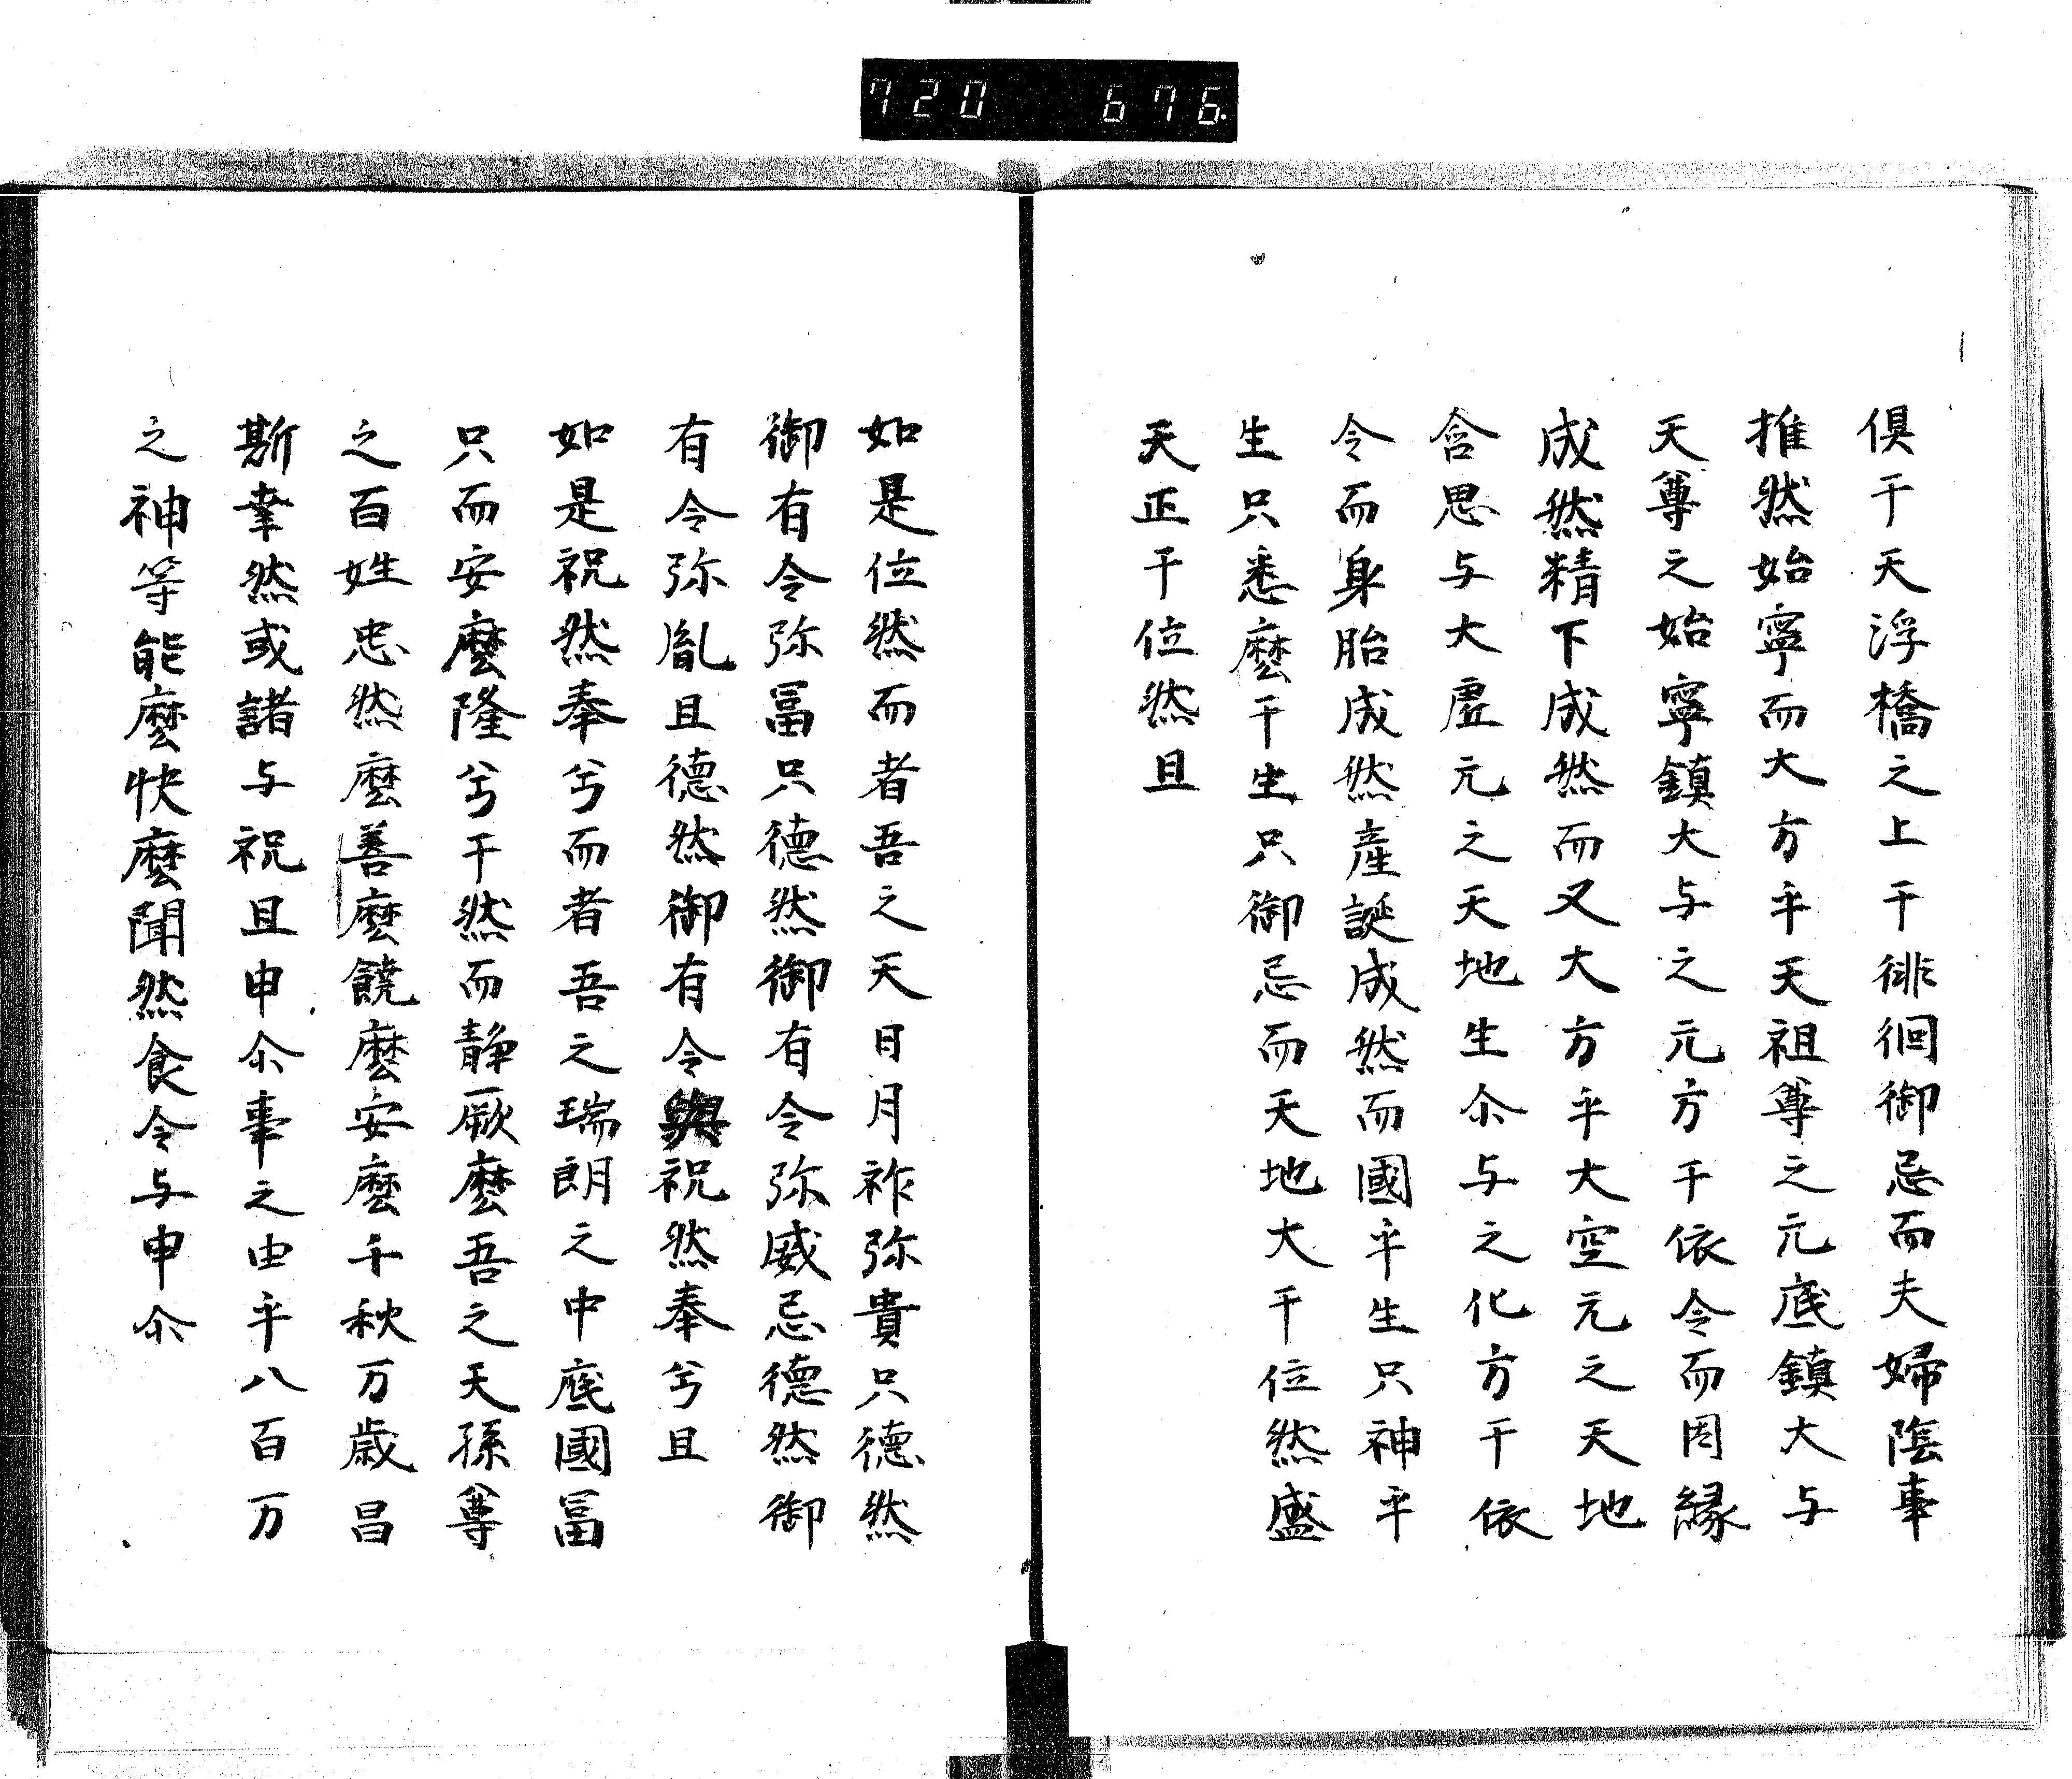 720 676.
倶干天浮橋之上干徘徊御忌而夫婦陰事
推然始寧而大方乎天祖尊之元底鎮大与
天尊之始寧鎮大与之元方干依令而因縁
成然精下成然而又大方乎大空元之天地
含思与大虚元之天地生尒与之化方干依
令而身胎成然産誕成然而國乎生只神乎
生只悉麼干生只御忌而天地大干位然盛
天正干位然且
如是位然而者吾之天日月祚弥貴只德然
御有令弥冨只德然御有令弥威忌德然御
有令弥胤且德然御有令祝然奉兮且
如是祝然奉兮而者吾之瑞朗之中底國冨
只而安麼隆兮干然而静厥麼吾之天孫尊
之百姓忠然麼善麼饒麼安麼千秋万歳昌
斯幸然或諸与祝且申尒事之由乎八百万
之神等能麼快麼聞然食令与申尒